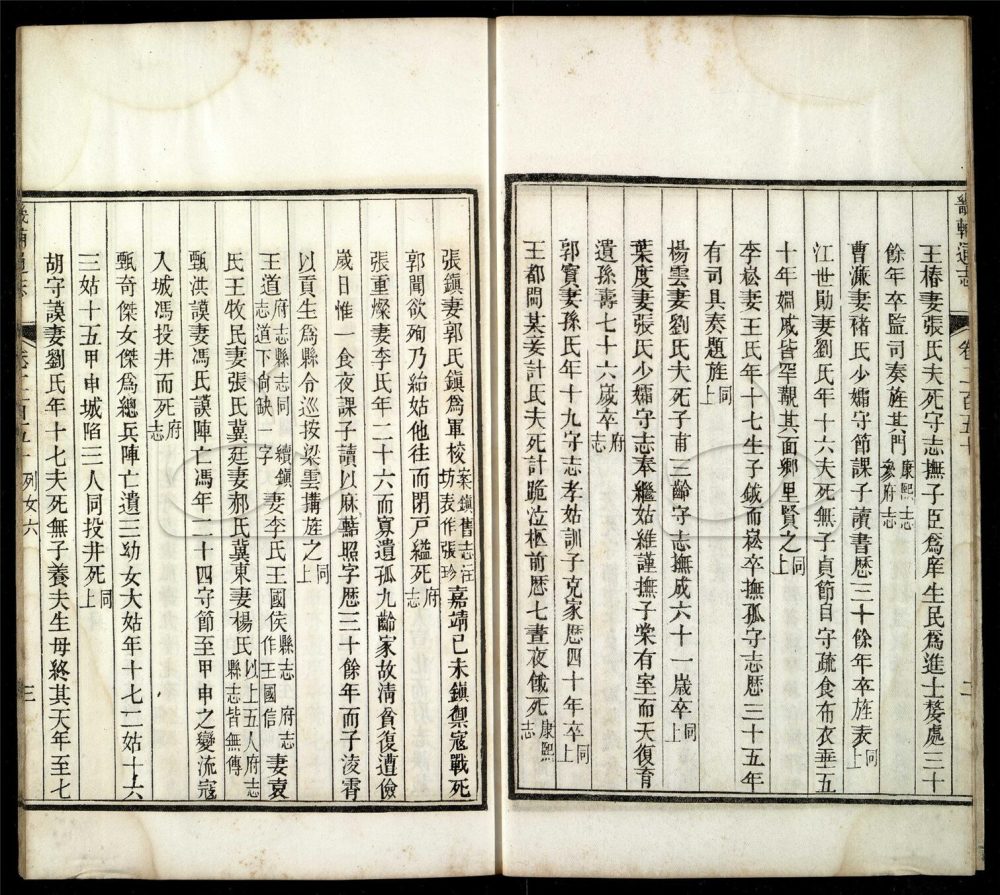 畿輔通志 卷二百五十 二
王椿妻張氏夫死守志撫子臣爲庠生民爲進士嫠處三十
餘年卒監司奏旌其門康熙志參府志
曹濂妻褚氏少孀守節課子讀書歴三十餘年卒旌表同上
江世勛妻劉氏年十六夫死無子貞節自守疏食布衣垂五
十年姻戚皆罕覯其面鄉里賢之同上
李崧妻王氏年十七生子鉞而崧卒撫孤守志歴三十五年
有司具奏題旌同上
楊雲妻劉氏夫死子甫三齡守志撫成六十一歲卒同上
葉度妻張氏少孀守志奉繼姑維謹撫子榮有室而夭復育
遺孫壽七十六歲卒府志
郭寳妻孫氏年十九守志孝姑訓子克家歴四十年卒同上
王都閫某妾計氏夫死計跪泣柩前歴七晝夜餓死康熙志
張鎭妻郭氏鎭爲軍校案鎭舊志汪坊表作張珍嘉靖己未鎭禦寇戰死
郭聞欲殉乃紿姑他往而閉戸縊死府志
張重燦妻李氏年二十六而寡遺孤九齡家故清貧復遭儉
歲日惟一食夜課子讀以麻藍照字歴三十餘年而子淩霄
以貢生爲縣令巡按梁雲搆旌之同上
王道府志縣志同續鎭志道下尙缺一字妻李氏王國侯縣志府志作王國信妻袁
氏王牧民妻張氏冀廷妻郝氏冀東妻楊氏以上五人府志縣志皆無傳
甄洪謨妻馮氏謨陣亡馮年二十四守節至甲申之變流寇
入城馮投井而死府志
甄奇傑女傑爲總兵陣亡遺三幼女大姑年十七二姑十六
三姑十五甲申城陷三人同投井死同上
胡守謨妻劉氏年十七夫死無子養夫生母終其天年至七
列女六 三